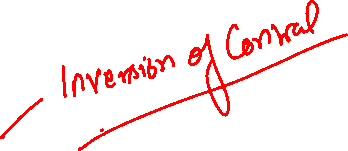 Inversion of Control